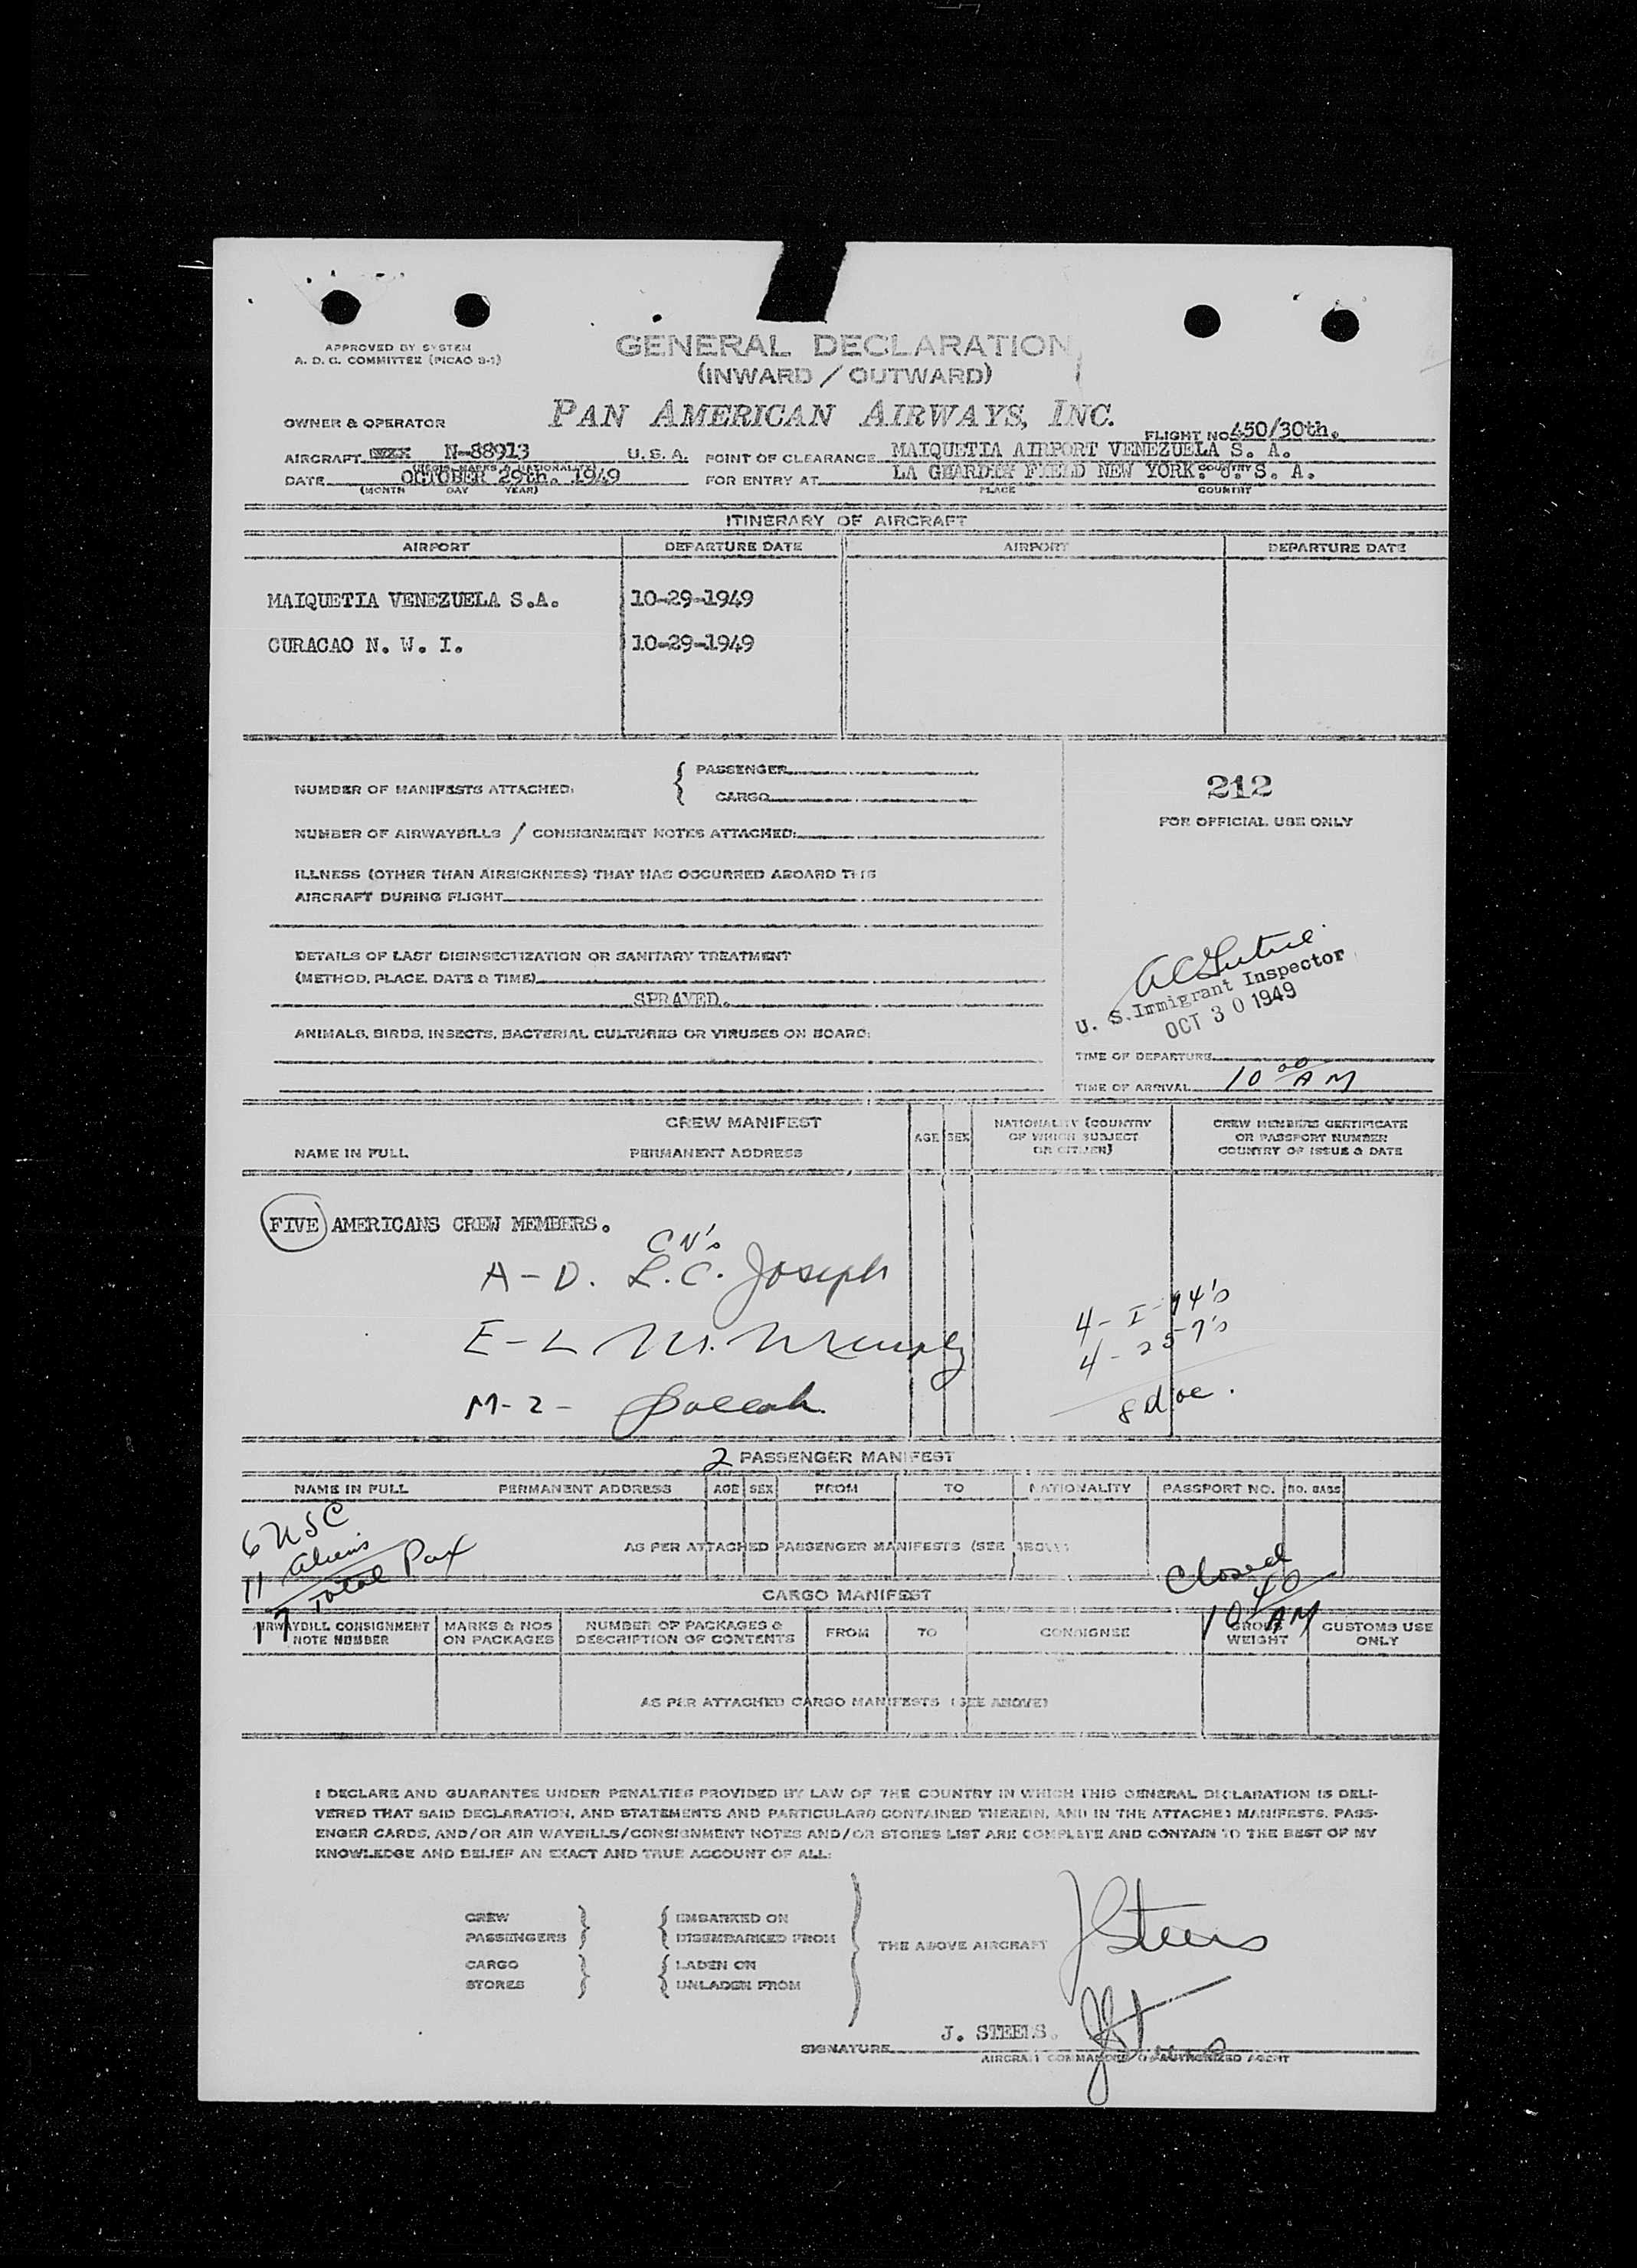 APPROVED BY SYSTEM
A. D. G. COMMITTEE (PICAO S-1)
GENERAL DECLARATION
(INWARD / OUTWARD)
OWNER & OPERATOR PAN AMERICAN AIRWAYS, INC.
FLIGHT NO. 450/30th.
AIRCRAFT N-88913 U. S. A. POINT OF CLEARANCE MAIQUETIA AIRPORT VENEZUELA S. A.
DATE OCTOBER 29th. 1949 FOR ENTRY AT LA GUARDIA FIELD NEW YORK. U. S. A.
(MONTH DAY YEAR) PLACE COUNTRY
ITINERARY OF AIRCRAFT
AIRPORT DEPARTURE DATE AIRPORT DEPARTURE DATE
MAIQUETIA VENEZUELA S.A. 10-29-1949
CURACAO N. W. I. 10-29-1949
NUMBER OF MANIFESTS ATTACHED: { PASSENGER
CARGO
212
FOR OFFICIAL USE ONLY
NUMBER OF AIRWAYBILLS / CONSIGNMENT NOTES ATTACHED:
ILLNESS (OTHER THAN AIRSICKNESS) THAT HAS OCCURRED ABOARD THIS
AIRCRAFT DURING FLIGHT
DETAILS OF LAST DISINSECTIZATION OR SANITARY TREATMENT
(METHOD, PLACE, DATE & TIME)
SPRAYED.
ANIMALS, BIRDS, INSECTS, BACTERIAL CULTURES OR VIRUSES ON BOARD:
U. S. Immigrant Inspector
OCT 30 1949
TIME OF DEPARTURE
TIME OF ARRIVAL 10 00 AM
CREW MANIFEST
NAME IN FULL PERMANENT ADDRESS AGE SEX NATIONALITY (COUNTRY OF WHICH SUBJECT OR CITIZEN) CREW MEMBERS CERTIFICATE OR PASSPORT NUMBER COUNTRY OF ISSUE & DATE
FIVE AMERICANS CREW MEMBERS.
CN's
A-D. L.C. Joseph
E-L M. Murphy
M-2-
4- I-94's
4- 257's
8 doc.
2 PASSENGER MANIFEST
NAME IN FULL PERMANENT ADDRESS AGE SEX FROM TO NATIONALITY PASSPORT NO. NO. BAGS
6 USC
11 aliens
17 Total Pax
AS PER ATTACHED PASSENGER MANIFESTS (SEE ABOVE)
Closed
10 40 AM
CARGO MANIFEST
AIRWAYBILL CONSIGNMENT NOTE NUMBER MARKS & NOS ON PACKAGES NUMBER OF PACKAGES & DESCRIPTION OF CONTENTS FROM TO CONSIGNEE GROSS WEIGHT CUSTOMS USE ONLY
AS PER ATTACHED CARGO MANIFESTS (SEE ABOVE)
I DECLARE AND GUARANTEE UNDER PENALTIES PROVIDED BY LAW OF THE COUNTRY IN WHICH THIS GENERAL DECLARATION IS DELI-
VERED THAT SAID DECLARATION, AND STATEMENTS AND PARTICULARS CONTAINED THEREIN, AND IN THE ATTACHED MANIFESTS, PASS-
ENGER CARDS, AND/OR AIR WAYBILLS/CONSIGNMENT NOTES AND/OR STORES LIST ARE COMPLETE AND CONTAIN TO THE BEST OF MY
KNOWLEDGE AND BELIEF AN EXACT AND TRUE ACCOUNT OF ALL:
CREW EMBARKED ON
PASSENGERS DISEMBARKED FROM
THE ABOVE AIRCRAFT JSteers
CARGO LADEN ON
STORES UNLADEN FROM
J. STEERS.
SIGNATURE
AIRCRAFT COMMANDER OR AUTHORIZED AGENT